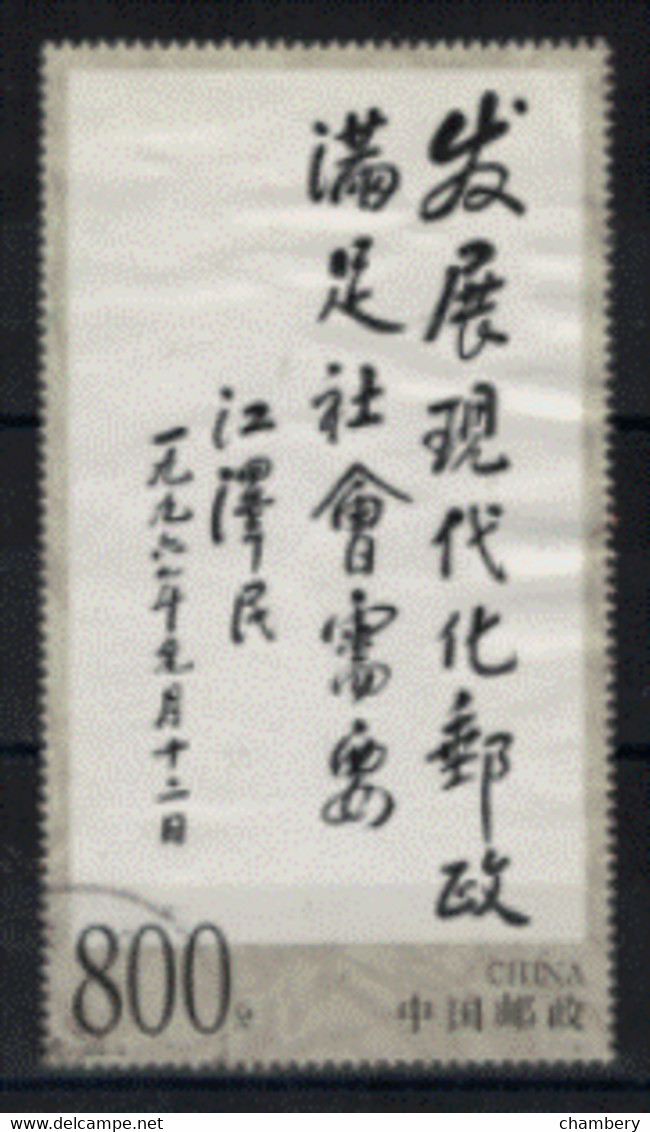 发展现代化郵政
满足社會需要
江澤民
一九九六年元月十二日
800分
CHINA
中国邮政
www.delcampe.net
chambery